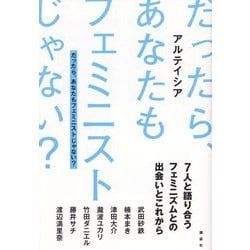 だったら、
あなたも
フェミニスト
じゃない?
だったら、あなたもフェミニストじゃない?
アルテイシア
7人と語り合う
フェミニズムとの
出会いとこれから
武田砂鉄
楠本まき
津田大介
瀧波ユカリ
竹田ダニエル
藤井サチ
渡辺満里奈
講談社